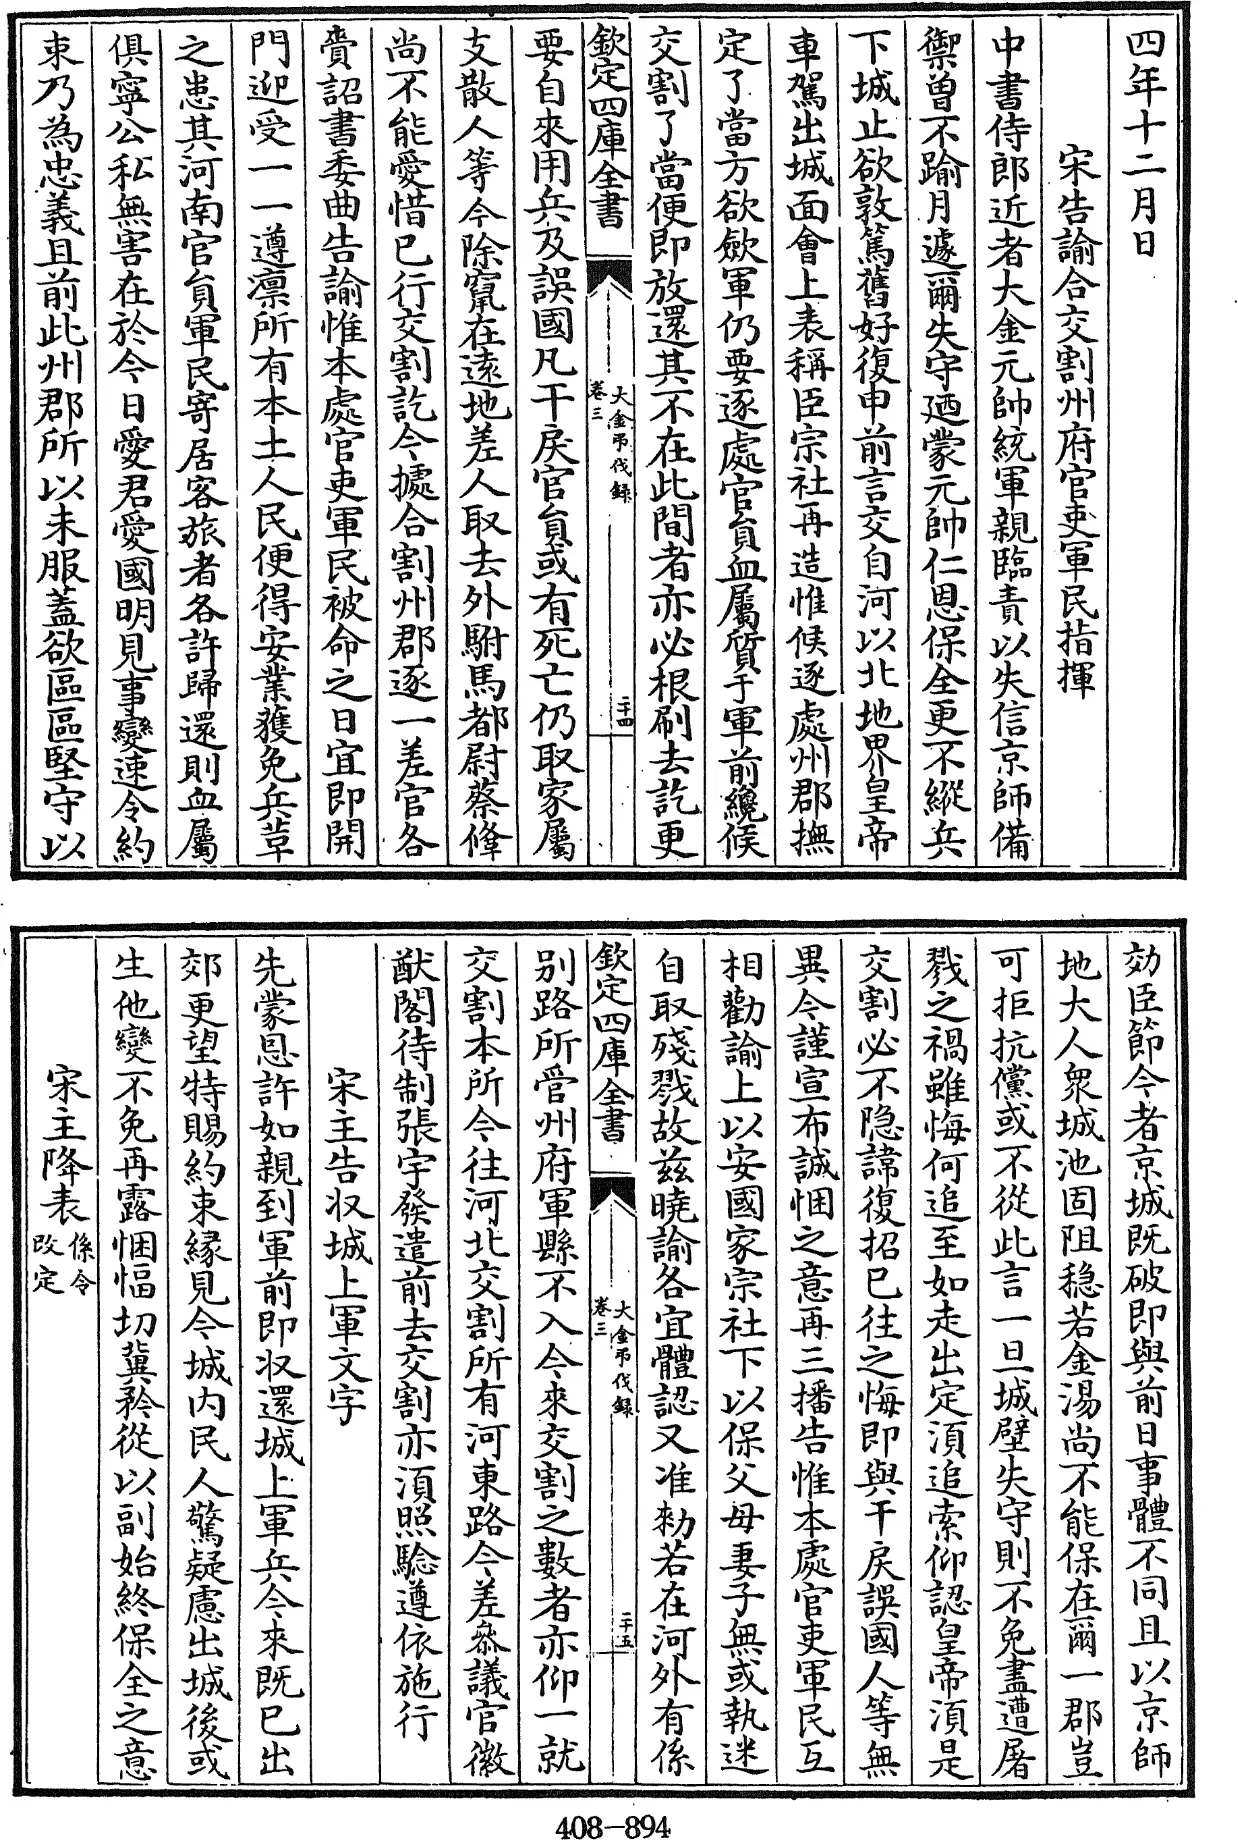 四年十二月日
宋告諭合交割州府官吏軍民指揮
中書侍郎近者大金元帥統軍親臨責以失信京師備
禦曾不踰月遽爾失守廼蒙元帥仁恩保全更不縱兵
下城止欲敦篤舊好復申前言交自河以北地界皇帝
車駕出城面會上表稱臣宗社再造惟候逐處州郡撫
定了當方欲歛軍仍要逐處官員血屬質于軍前纔候
交割了當便即放還其不在此間者亦必根刷去訖更
欽定四庫全書
大金弔伐録
卷三
二十四
要自來用兵及誤國凡干戾官員或有死亡仍取家屬
支散人等今除竄在逺地差人取去外駙馬都尉蔡鞗
尚不能愛惜已行交割訖今據合割州郡逐一差官各
賫詔書委曲告諭惟本處官吏軍民被命之日宜即開
門迎受一一遵禀所有本土人民便得安業獲免兵革
之患其河南官員軍民寄居客旅者各許歸還則血屬
俱寧公私無害在於今日愛君愛國明見事變速令約
束乃為忠義且前此州郡所以未服蓋欲區區堅守以
効臣節今者京城既破即與前日事體不同且以京師
地大人衆城池固阻稳若金湯尚不能保在爾一郡豈
可拒抗儻或不從此言一旦城壁失守則不免盡遭屠
戮之禍雖悔何追至如走出定須追索仰認皇帝須是
交割必不隐諱復招已往之悔即與干戾誤國人等無
異今謹宣布誠悃之意再三播告惟本處官吏軍民互
相勸諭上以安國家宗社下以保父母妻子無或執迷
自取殘戮故兹曉諭各宜體認又准勑若在河外有係
欽定四庫全書
大金弔伐録
卷三
二十五
别路所管州府軍縣不入今來交割之數者亦仰一就
交割本所今往河北交割所有河東路今差叅議官徽
猷閣待制張宇發遣前去交割亦須照驗遵依施行
宋主告収城上軍文字
先蒙恩許如親到軍前即収還城上軍兵今來既已出
郊更望特賜約束緣見今城内民人驚疑慮出城後或
生他變不免再露悃愊切冀矜從以副始終保全之意
宋主降表係令
改定
408-894